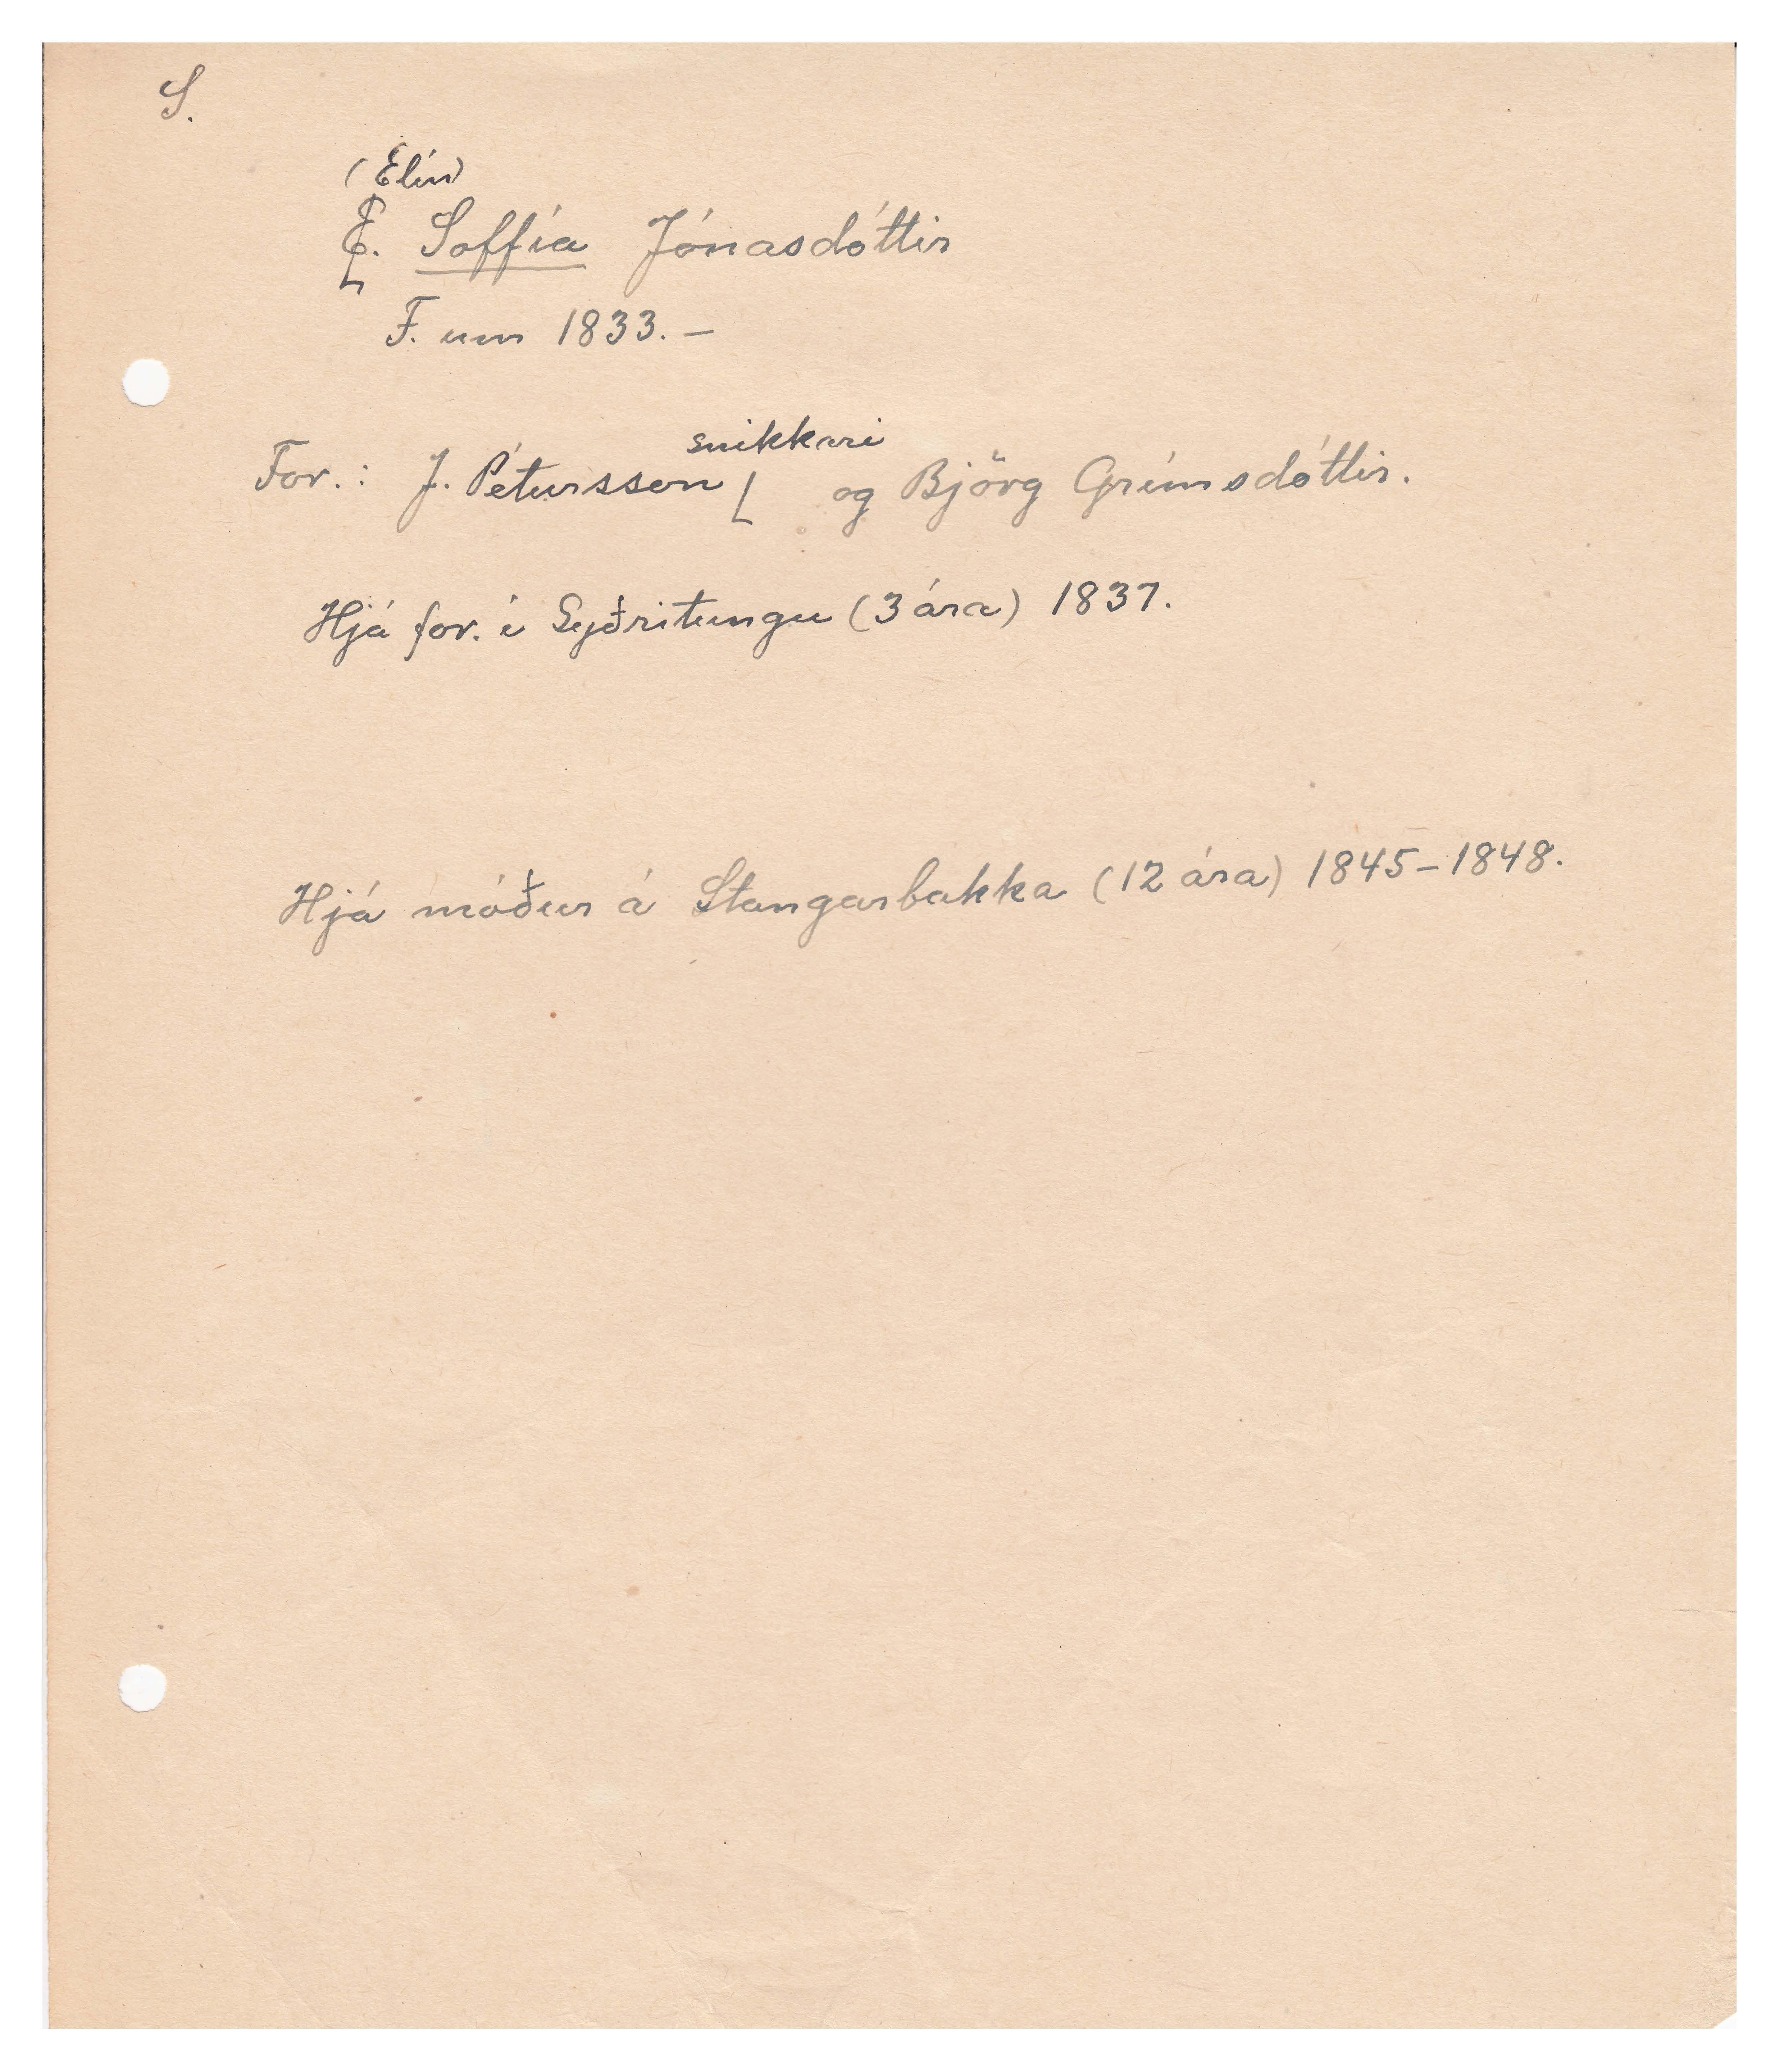 S.
(Elín)
E. Soffía Jónasdóttir
F. um 1833. –
snikkari
For.: J. Pétursson og Björg Grímsdóttir.
Hjá for. í Syðritungu (3 ára) 1837.
Hjá móður á Stangarbakka (12 ára) 1845–1848.